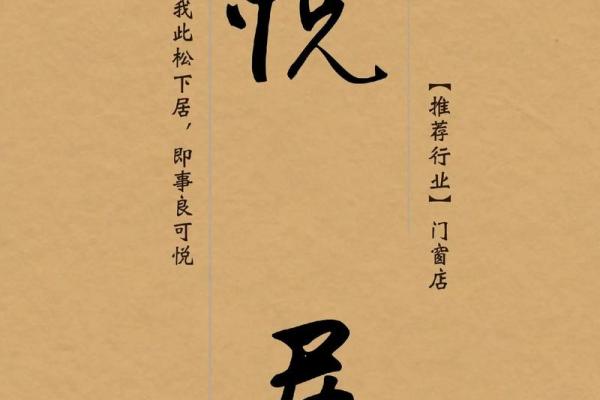 【推荐行业】门窗店
悦
居
我此松下居，即事良可悦